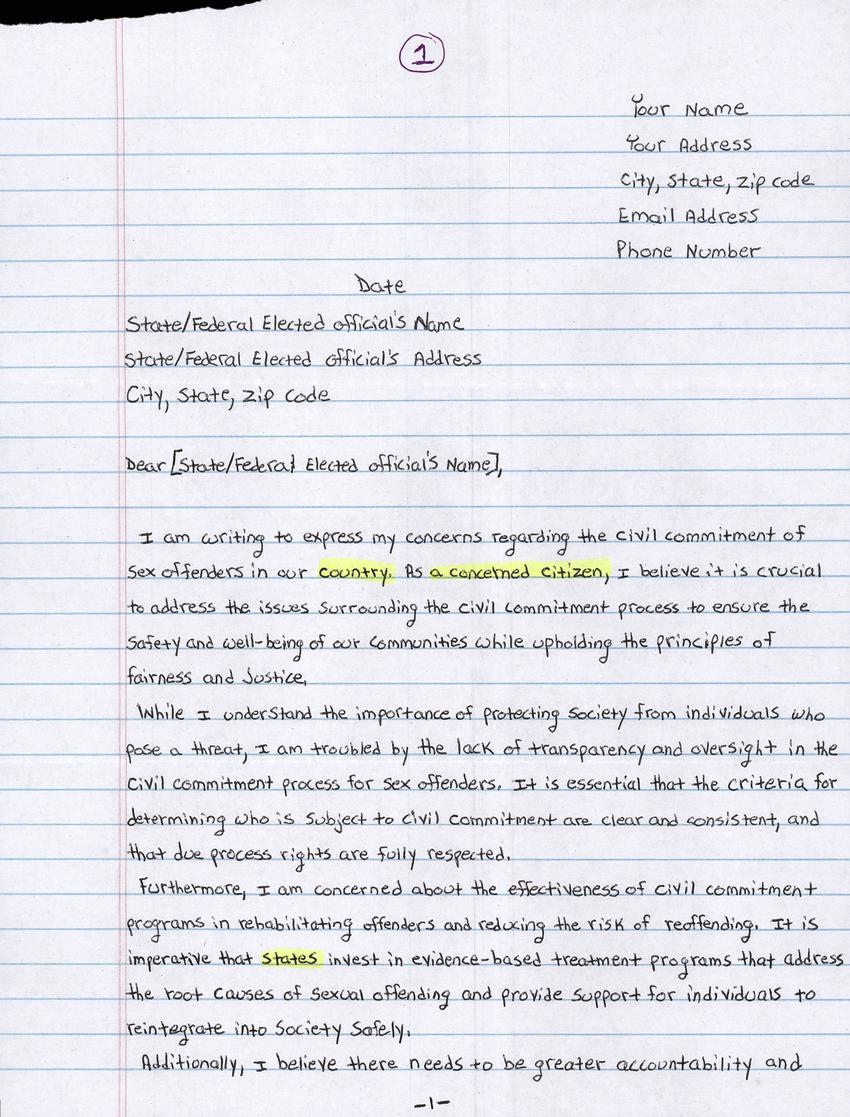 1
Your Name
Your Address
City, State, Zip code
Email Address
Phone Number
Date
State/Federal Elected official's Name
State/Federal Elected official's Address
City, State, Zip Code
Dear [State/Federal Elected official's Name],
I am writing to express my concerns regarding the civil commitment of
sex offenders in our country. As a concerned citizen, I believe it is crucial
to address the issues surrounding the civil commitment process to ensure the
safety and well-being of our communities while upholding the principles of
fairness and Justice.
While I understand the importance of protecting society from individuals who
pose a threat, I am troubled by the lack of transparency and oversight in the
civil commitment process for sex offenders. It is essential that the criteria for
determining who is subject to civil commitment are clear and consistent, and
that due process rights are fully respected.
Furthermore, I am concerned about the effectiveness of civil commitment
programs in rehabilitating offenders and reducing the risk of reoffending. It is
imperative that states invest in evidence-based treatment programs that address
the root causes of sexual offending and provide support for individuals to
reintegrate into Society Safely.
Additionally, I believe there needs to be greater accountability and
-1-